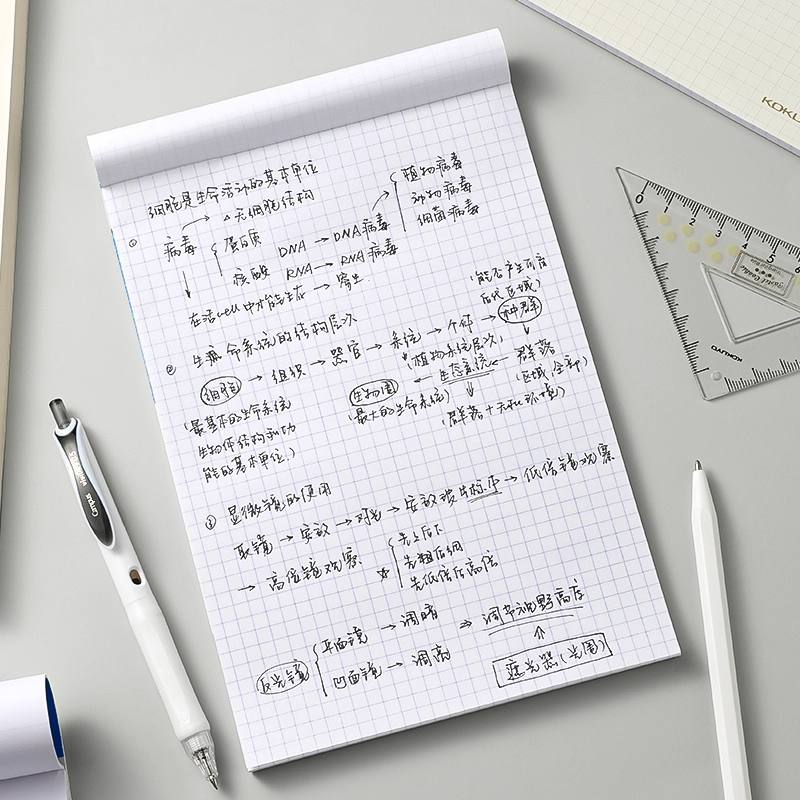 细胞是生命活动的基本单位
→ △无细胞结构
① 病毒 { 蛋白质
核酸 DNA → DNA病毒 { 植物病毒
RNA → RNA病毒 动物病毒
细菌病毒
在活cell中才能生存 → 寄生
② 生命系统的结构层次
细胞 → 组织 → 器官 → 系统 → 个体 → 种群
(能否产生可育后代 区域)
(植物系统层次)
生物圈 ← 生态系统 ← 群落
(最大的生命系统) (群落+无机环境) (区域 全部)
(最基本的生命系统
生物体结构和功
能的基本单位)
③ 显微镜的使用
取镜 → 安放 → 对光 → 安放玻片标本 → 低倍镜观察
→ 高倍镜观察 ☆ { 先上后下
先粗后细
先低倍后高倍
反光镜 { 平面镜 → 调暗 ⇒ 调节视野高度
凹面镜 → 调亮
遮光器(光圈)
KOKU
0 1 2 3 4 5 6
KOKUYO
Campus